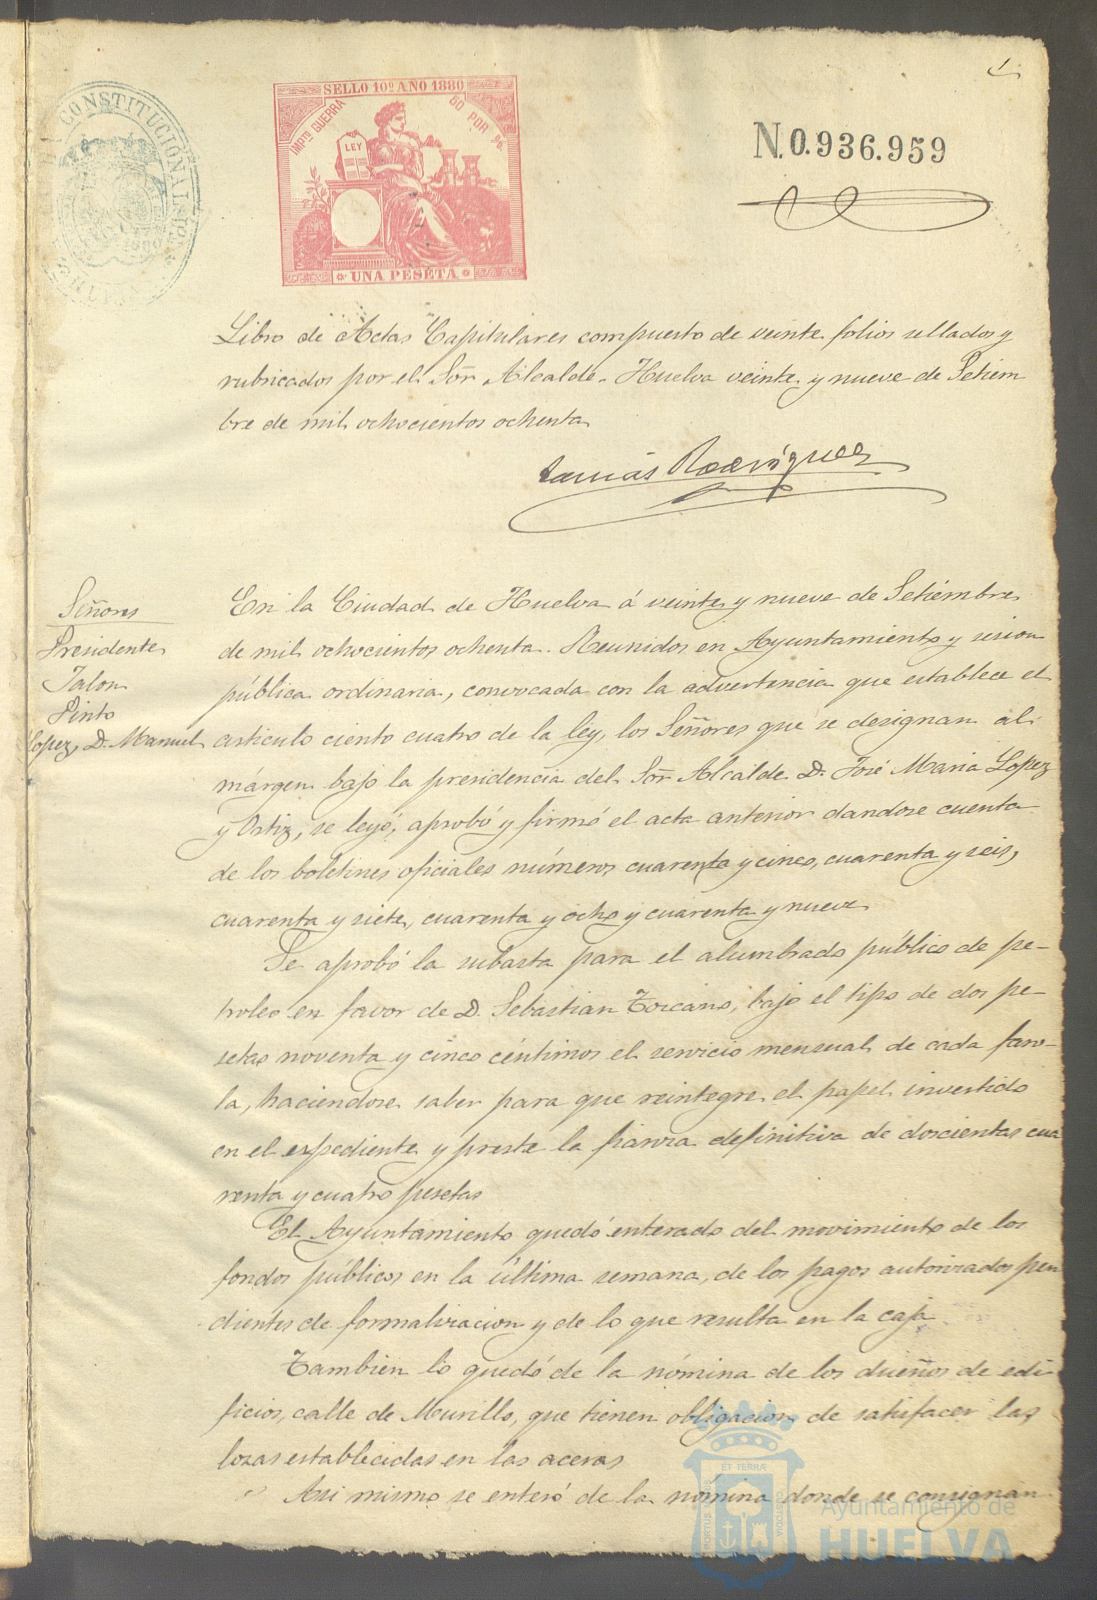 1
CONSTITUCIONAL
SELLO 10º AÑO 1880
IMPTO GUERRA
50 POR %
LEY
UNA PESETA
N.0.936.959
Libro de Actas Capitulares compuesto de veinte folios sellados y
rubricados por el Sor Alcalde. Huelva veinte y nueve de Setiem
bre de mil ochocientos ochenta
Tomás Rodriguez
Señores
Presidente
Jalon
Pinto
Lopez, D. Manuel
En la Ciudad de Huelva á veinte y nueve de Setiembre
de mil ochocientos ochenta. Reunidos en Ayuntamiento y sesion
pública ordinaria, convocada con la advertencia que establece el
articulo ciento cuatro de la ley, los Señores que se designan al
márgen bajo la presidencia del Sor Alcalde D. José Maria Lopez
y Ortiz, se leyó, aprobó y firmó el acta anterior dandose cuenta
de los boletines oficiales números cuarenta y cinco, cuarenta y seis,
cuarenta y siete, cuarenta y ocho y cuarenta y nueve
Se aprobó la subasta para el alumbrado público de pe-
troleo en favor de D. Sebastian Toscano, bajo el tipo de dos pe-
setas noventa y cinco céntimos el servicio mensual de cada faro-
la, haciendose saber para que reintegre el papel invertido
en el espediente y preste la fianza definitiva de doscientas cua
renta y cuatro pesetas
El Ayuntamiento quedó enterado del movimiento de los
fondos públicos en la última semana, de los pagos autorizados pen
dientes de formalizacion y de lo que resulta en la caja
Tambien lo quedó de la nómina de los dueños de edi-
ficios, calle de Murillo, que tienen obligacion de satisfacer las
lozas establecidas en las aceras
Asi mismo se enteró de la nómina donde se consignan
ET TERRÆ
PORTUS MARIS
CUSTODIA
Ayuntamiento de
HUELVA